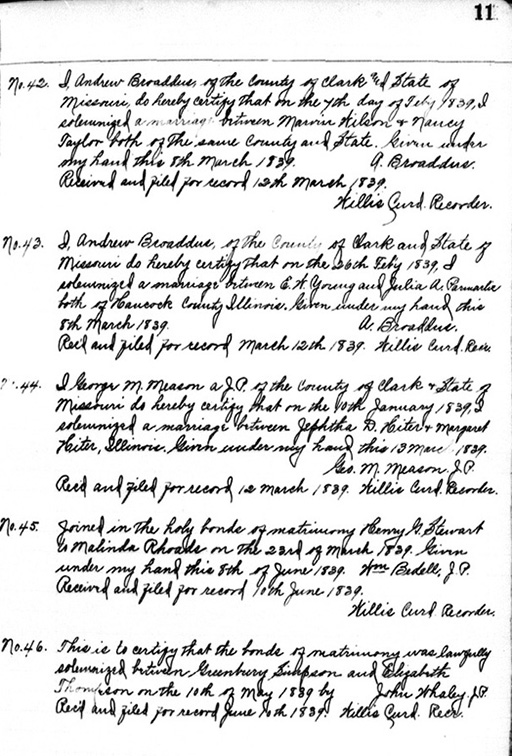 11
No. 42. I, Andrew Broaddus, of the County of Clark and State of
Missouri, do hereby certify that on the 7th day of Feby 1839, I
solemnized a marriage between Marvin Wilson & Nancy
Taylor both of the same County and State. Given under
my hand this 8th March 1839. A. Broaddus.
Received and filed for record 12th March 1839.
Willis Curd. Recorder.
No. 43. I, Andrew Broaddus, of the County of Clark and State of
Missouri do hereby certify that on the 26th Feby 1839, I
solemnized a marriage between E. W. Young and Julia A. Parmartee
both of Hancock County Illinois. Given under my hand this
8th March 1839. A. Broaddus.
Recd and filed for record March 12th 1839. Willis Curd. Recr.
44. I George M. Meason a J.P. of the County of Clark & State of
Missouri do hereby certify that on the 10th January 1839, I
solemnized a marriage between Jephtha D. Hiter & Margaret
Hiter, Illinois. Given under my hand this 13 Mar 1839.
Geo. M. Meason J.P.
Recd and filed for record 12 March 1839. Willis Curd. Recorder.
No. 45. Joined in the holy bonds of matrimony Henry G. Stewart
to Malinda Rhoads on the 23rd of March 1839. Given
under my hand this 8th of June 1839. Wm Bedell, J.P.
Received and filed for record 10th June 1839.
Willis Curd Recorder.
No. 46. This is to certify that the bonds of matrimony was lawfully
solemnized between Greenbury Simpson and Elizabeth
Thompson on the 10th of May 1839 by John Whaley J.P.
Recd and filed for record June 10th 1839. Willis Curd. Recr.